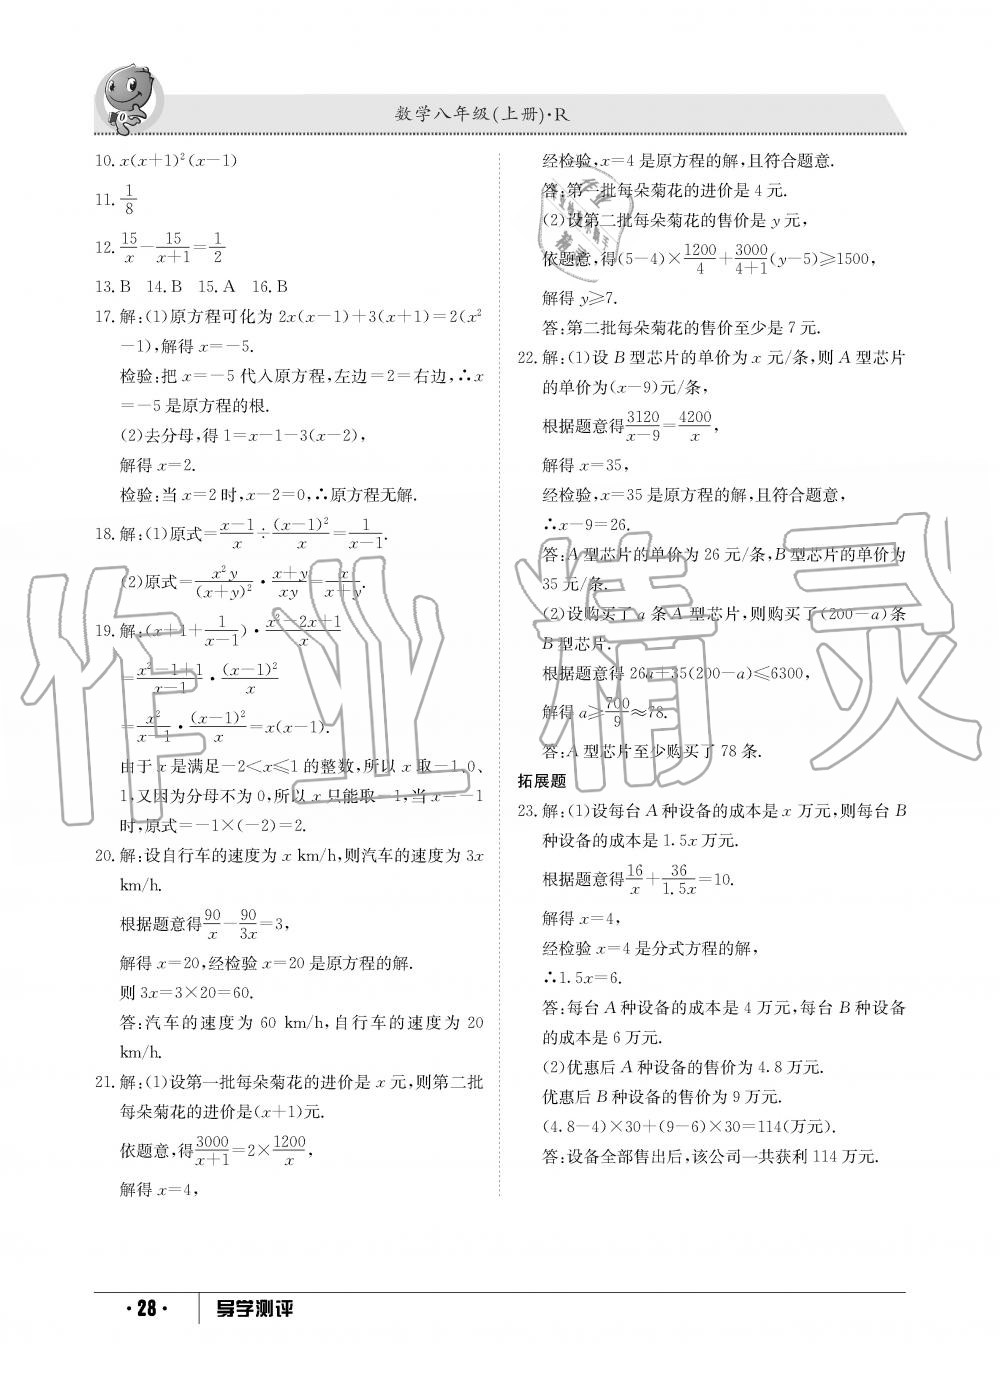 数学八年级(上册)·R
10. x(x+1)²(x-1)
11. 1/8
12. 15/x - 15/(x+1) = 1/2
13. B 14. B 15. A 16. B
17. 解:(1)原方程可化为 2x(x-1)+3(x+1)=2(x²
-1),解得 x=-5.
检验:把 x=-5 代入原方程,左边=2=右边,∴x
=-5 是原方程的根.
(2)去分母,得 1=x-1-3(x-2),
解得 x=2.
检验:当 x=2 时,x-2=0,∴原方程无解.
18. 解:(1)原式=(x-1)/x ÷ (x-1)²/x = 1/(x-1).
(2)原式= x²y/(x+y)² · (x+y)/xy = x/(x+y).
19. 解:(x+1+1/(x-1))·(x²-2x+1)/x
=(x²-1+1)/(x-1)·(x-1)²/x
=x²/(x-1)·(x-1)²/x=x(x-1).
由于 x 是满足-2<x≤1 的整数,所以 x 取-1,0、
1,又因为分母不为 0,所以 x 只能取-1,当 x=-1
时,原式=-1×(-2)=2.
20. 解:设自行车的速度为 x km/h,则汽车的速度为 3x
km/h.
根据题意得 90/x - 90/3x = 3,
解得 x=20,经检验 x=20 是原方程的解.
则 3x=3×20=60.
答:汽车的速度为 60 km/h,自行车的速度为 20
km/h.
21. 解:(1)设第一批每朵菊花的进价是 x 元,则第二批
每朵菊花的进价是(x+1)元.
依题意,得 3000/(x+1)=2×1200/x,
解得 x=4,
经检验,x=4 是原方程的解,且符合题意.
答:第一批每朵菊花的进价是 4 元.
(2)设第二批每朵菊花的售价是 y 元,
依题意,得(5-4)×1200/4+3000/(4+1)(y-5)≥1500,
解得 y≥7.
答:第二批每朵菊花的售价至少是 7 元.
22. 解:(1)设 B 型芯片的单价为 x 元/条,则 A 型芯片
的单价为(x-9)元/条,
根据题意得 3120/(x-9)=4200/x,
解得 x=35,
经检验,x=35 是原方程的解,且符合题意,
∴x-9=26.
答:A 型芯片的单价为 26 元/条,B 型芯片的单价为
35 元/条.
(2)设购买了 a 条 A 型芯片,则购买了(200-a)条
B 型芯片.
根据题意得 26a+35(200-a)≤6300,
解得 a≥700/9≈78.
答:A 型芯片至少购买了 78 条.
拓展题
23. 解:(1)设每台 A 种设备的成本是 x 万元,则每台 B
种设备的成本是 1.5x 万元.
根据题意得 16/x+36/1.5x=10.
解得 x=4,
经检验 x=4 是分式方程的解,
∴1.5x=6.
答:每台 A 种设备的成本是 4 万元,每台 B 种设备
的成本是 6 万元.
(2)优惠后 A 种设备的售价为 4.8 万元.
优惠后 B 种设备的售价为 9 万元.
(4.8-4)×30+(9-6)×30=114(万元).
答:设备全部售出后,该公司一共获利 114 万元.
作业精灵
·28· 导学测评